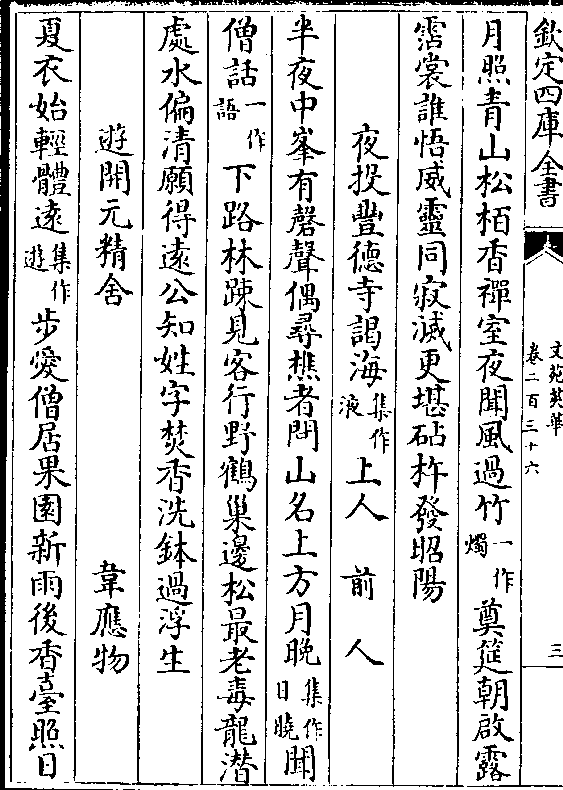 欽定四庫全書
文苑英華
卷二百三十六
三
月照青山松栢香禪室夜聞風過竹一作燭奠筵朝啟露
霑裳誰悟威靈同寂滅更堪砧杵發昭陽
夜投豐德寺謁海集作液上人 前人
半夜中峯有磬聲偶尋樵者問山名上方月晩集作日曉聞
僧話一作語下路林踈見客行野鶴巢邊松最老毒龍潛
處水偏清願得遠公知姓字焚香洗鉢過浮生
遊開元精舍 韋應物
夏衣始輕體遠集作遊步愛僧居果園新雨後香臺照日